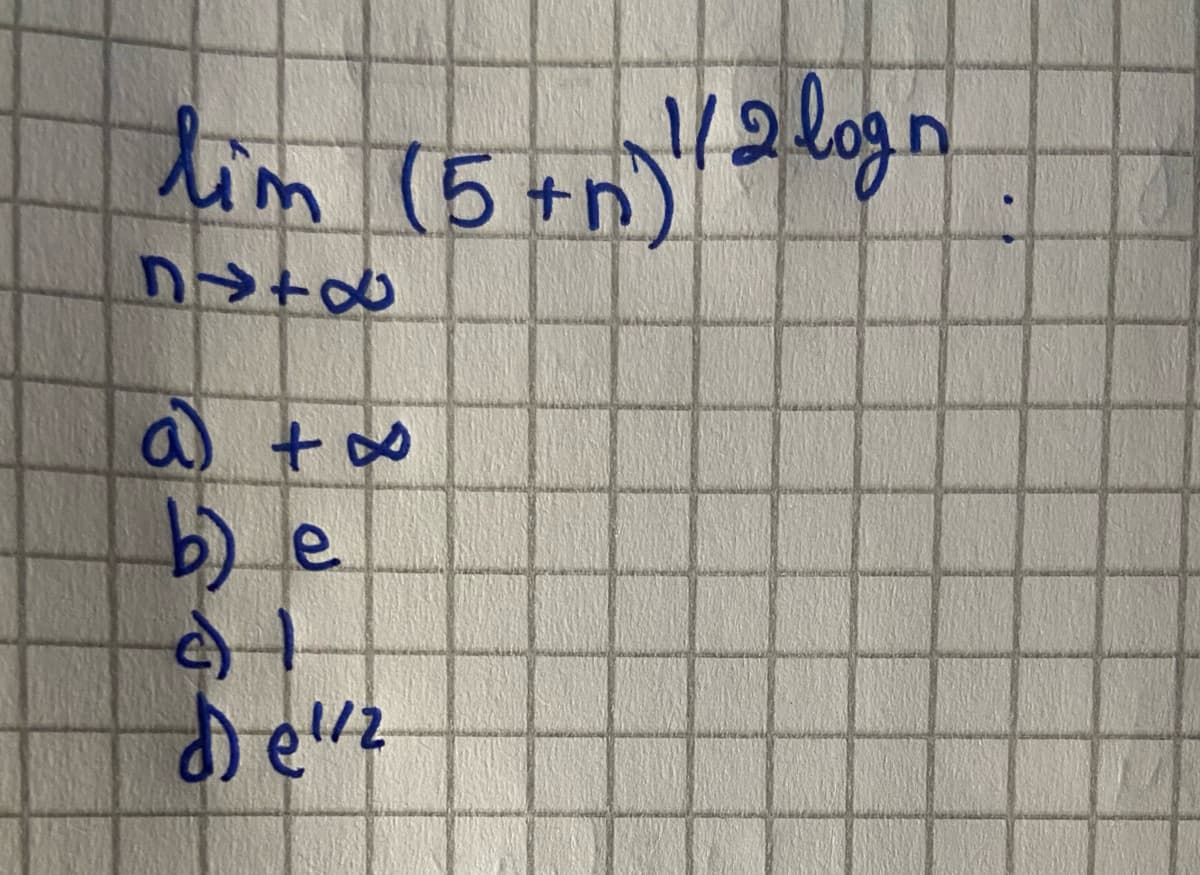 lim (5+n)^1/2 log n :
n→+∞
a) +∞
b) e
c) 1
d) e^1/2